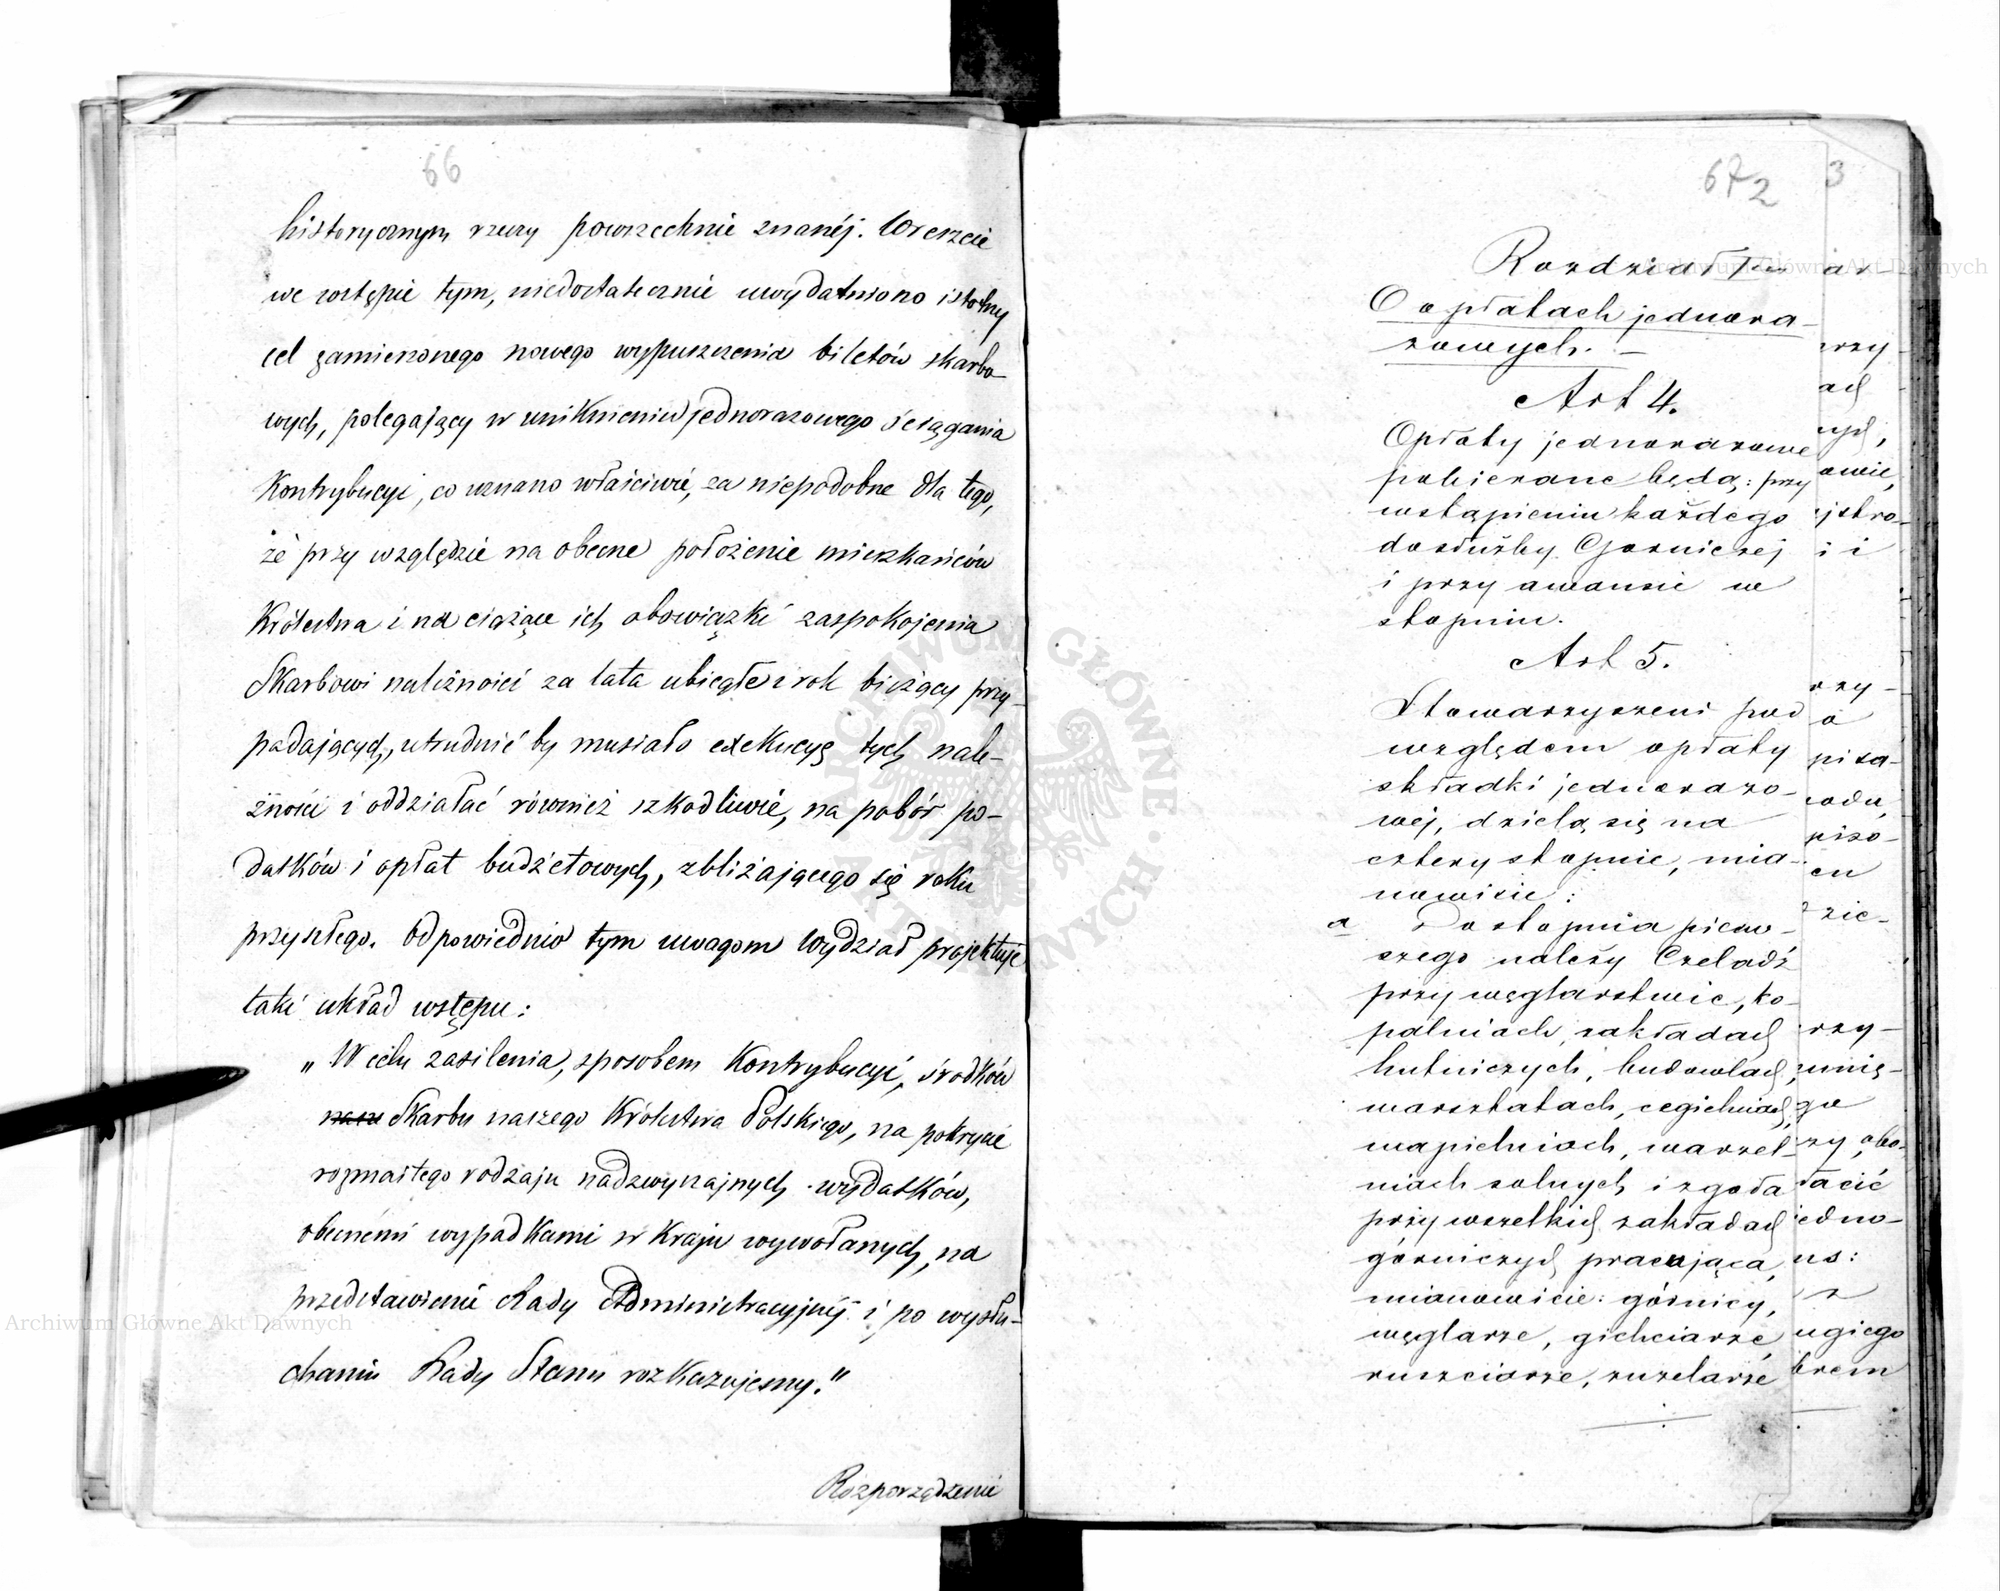 66
historycznym rzeczy powszechnie znanéj. Wreszcie
we wstępie tym, niedostatecznie uwydatniono istotny
cel zamierzonego nowego wypuszczenia biletów skarbo-
wych, polegający w uniknieniu jednorazowego ściągania
Kontrybucyi, co uznano właściwie, za niepodobne dla tego,
że przy względzie na obecne położenie mieszkańców
Królestwa i na ciążące ich obowiązki zaspokojenia
Skarbowi należności za lata ubiegłe i rok bieżący przy-
padających, utrudnić by musiało exekucyę tych nale-
żności i oddziałać również szkodliwie, na pobór po-
datków i opłat budżetowych, zbliżającego się roku
przyszłego. Odpowiednio tym uwagom Wydział projektuje
taki układ wstępu:
„W celu zasilenia, sposobem Kontrybucyi, środków
Skarbu naszego Królestwa Polskiego, na pokrycie
rozmaitego rodzaju nadzwyczajnych wydatków,
obecnemi wypadkami w Kraju wywołanych, na
przedstawienie Rady Administracyjnéj i po wysłu-
chaniu Rady Stanu rozkazujemy."
Rozporządzenie
67 2
Rozdział
O opłatach jednora-
zowych. -
Art 4.
Opłaty jednorazowe
pobierane będą: przy
wstąpieniu każdego
do służby Górniczej
i przy awansie w
stopniu.
Art 5.
Stowarzyszeni pod
względem opłaty
składki jednorazo-
wéj, dzielą się na
cztery stopnie, mia-
nowicie:
a Do stopnia pierw-
szego należy Czeladź
przy węglarstwie, ko-
palniach, zakładach
hutniczych, budowlach,
warsztatach, cegielniach,
wapielniach, warzel-
niach solnych i zgoła
przy wszelkich zakładach
górniczych pracująca,
mianowicie: górnicy,
węglarze, gichciarze,
ruszciarze, zuzelarze
3
ar-
rzy-
ach
nych,
owie,
jstro-
i i
rzy-
a
pisa-
wodu,
piso-
en
zie-
rzy-
umię-
go
zy, obo-
łacić
jedno-
us:
z
ugiego
brem
Archiwum Główne Akt Dawnych
Archiwum Główne Akt Dawnych
ARCHIWUM GŁÓWNE AKT DAWNYCH